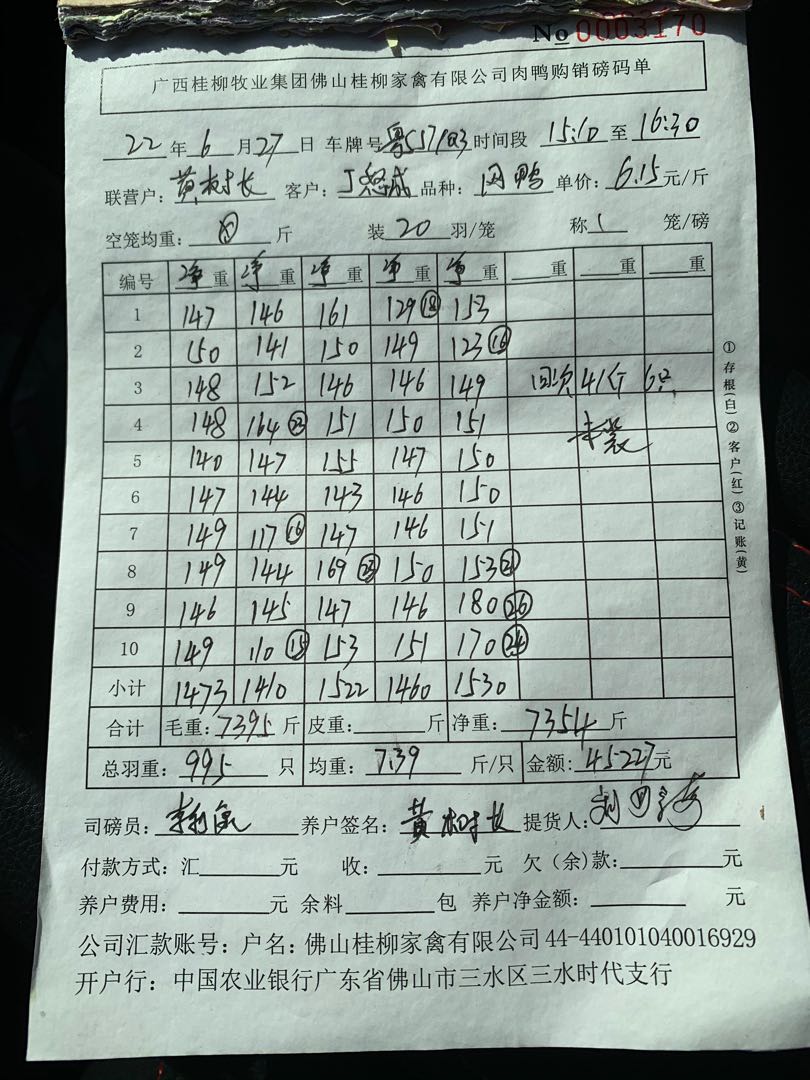 No 0003170
广西桂柳牧业集团佛山桂柳家禽有限公司肉鸭购销磅码单
22年6月27日 车牌号 时间段 15:10 至 16:30
联营户: 黄树长 客户: 品种: 鸭 单价: 6.15元/斤
空笼均重: 斤 装 20 羽/笼 称 1 笼/磅
编号 净重 净重 净重 净重 净重 重 重 重
1 147 146 161 129⑱ 153
2 150 141 150 149 123⑯
3 148 152 146 146 149 41斤 6只
4 148 164㉓ 151 150 151
5 140 147 155 147 150
6 147 144 143 146 150
7 149 117⑯ 147 146 151
8 149 144 169㉓ 150 153㉑
9 146 145 147 146 180㉖
10 149 110⑮ 153 151 170㉔
小计 1473 1410 1522 1460 1530
合计 毛重: 7395 斤 皮重: 斤 净重: 7354 斤
总羽重: 995 只 均重: 7.39 斤/只 金额: 45227元
司磅员: 养户签名: 黄树长 提货人:
付款方式: 汇 元 收: 元 欠(余)款: 元
养户费用: 元 余料 包 养户净金额: 元
公司汇款账号: 户名: 佛山桂柳家禽有限公司 44-440101040016929
开户行: 中国农业银行广东省佛山市三水区三水时代支行
①存根(白)②客户(红)③记账(黄)